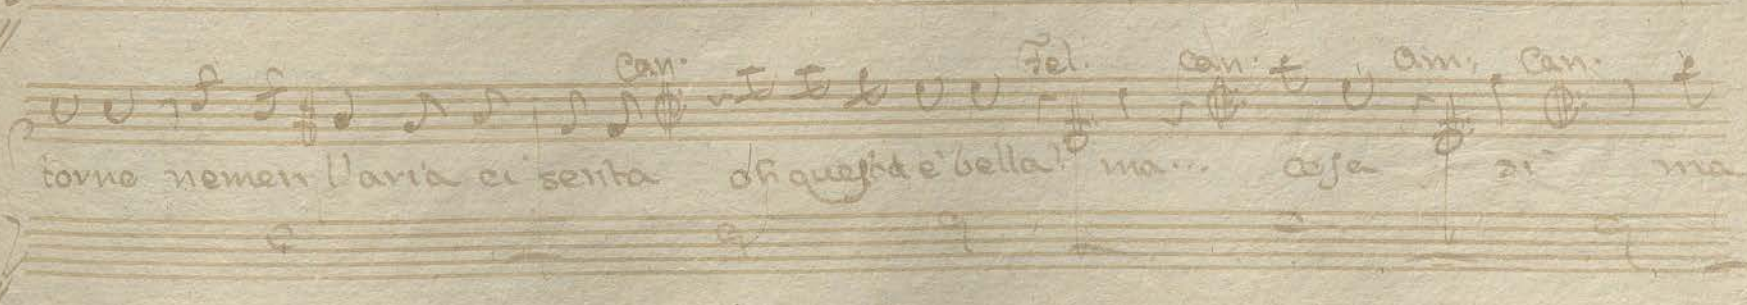 Can. Fel. Can. Am. Can.
torno nemen l'aria ci senta oh questa è bella! ma... cosa di ma